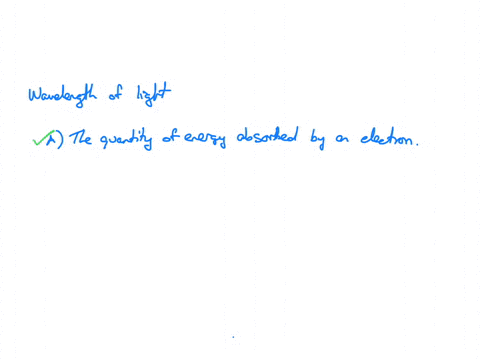 Wavelength of light
A) The quantity of energy absorbed by an electron.